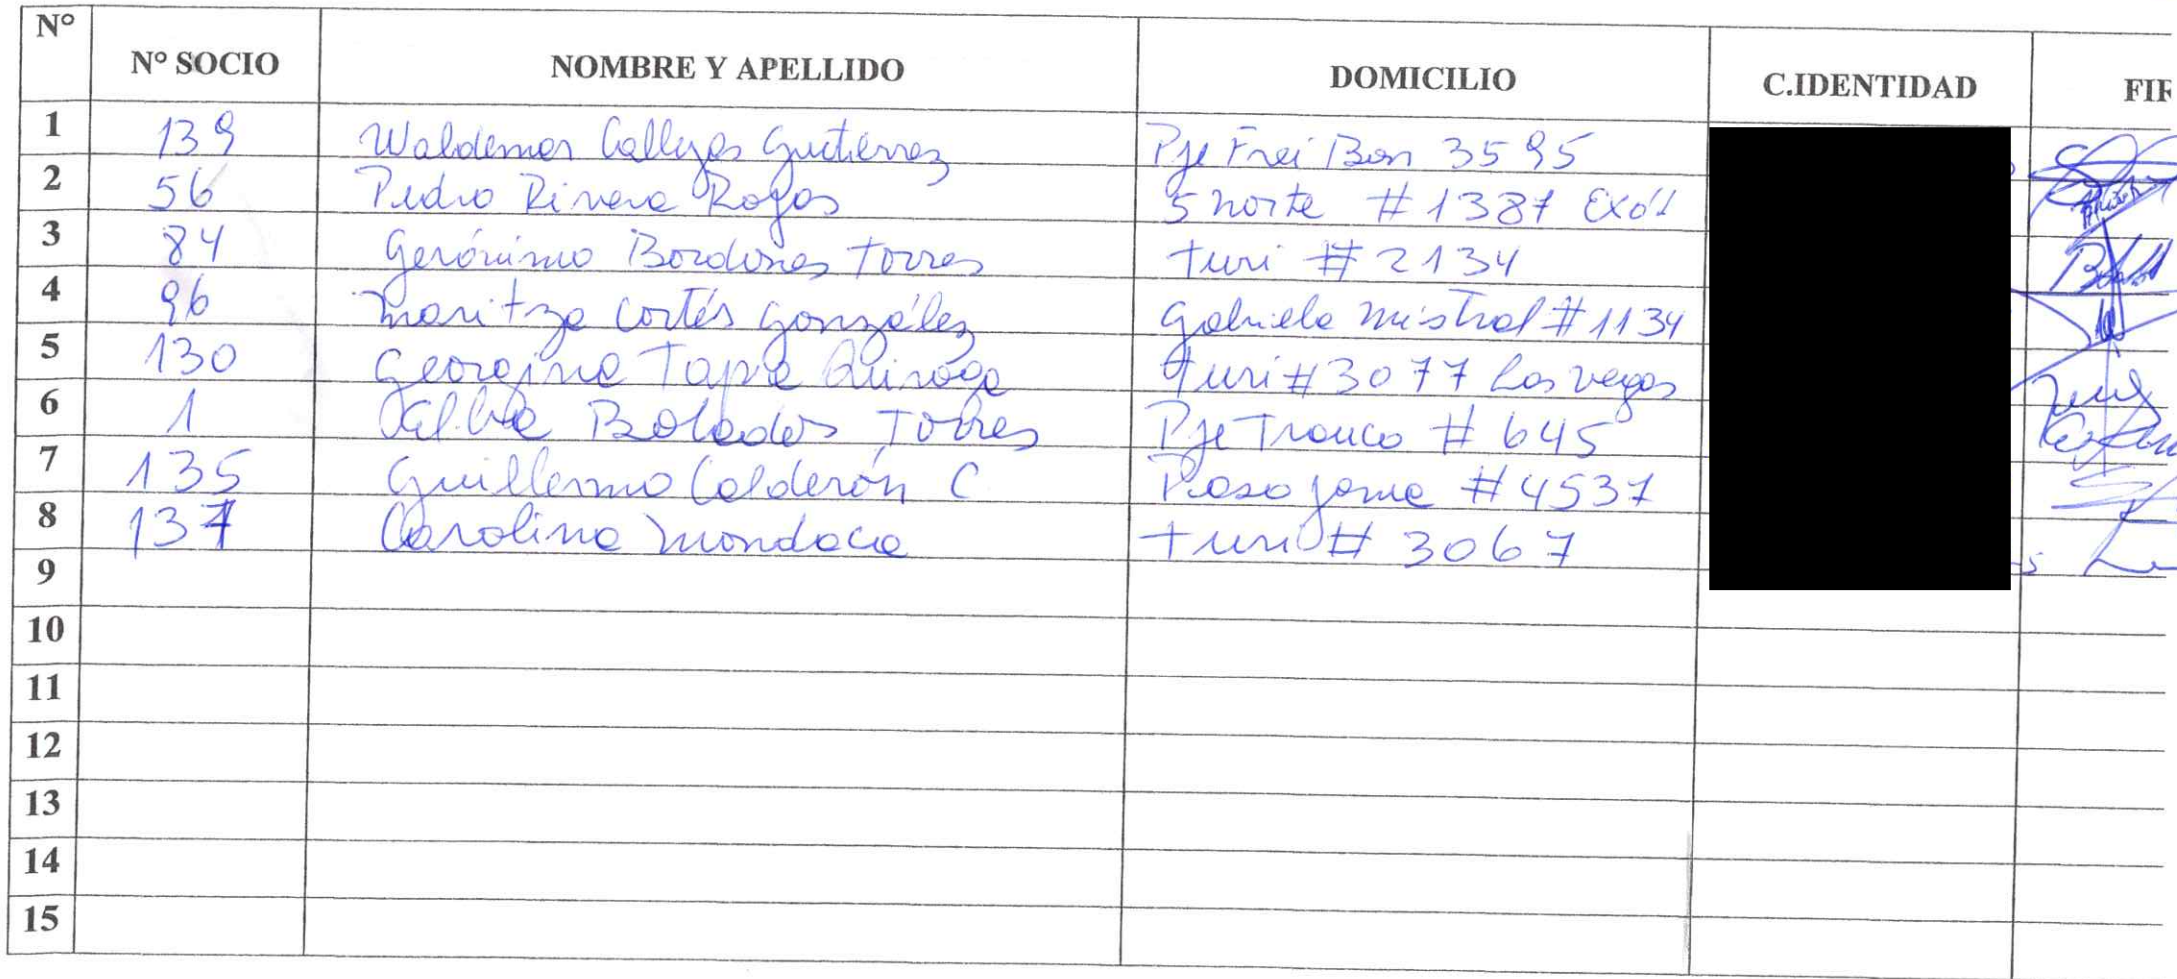 N° N° SOCIO NOMBRE Y APELLIDO DOMICILIO C.IDENTIDAD FIR
1 139 Waldemar Callejas Gutiérrez Pje Frei Bon 3595
2 56 Pedro Rivera Rojas 5 norte # 1387 Exót
3 84 Gerónimo Bordones Torres Turi # 2134
4 96 Maritza Cortés González Gabriela Mistral # 1134
5 130 Georgina Tapia Quiroga Turi # 3077 Las Vegas
6 1 Bolados Torres Pje Trauco # 645
7 135 Guillermo Calderón C # 4537
8 137 Carolina Mondaca Turi # 3067
9
10
11
12
13
14
15